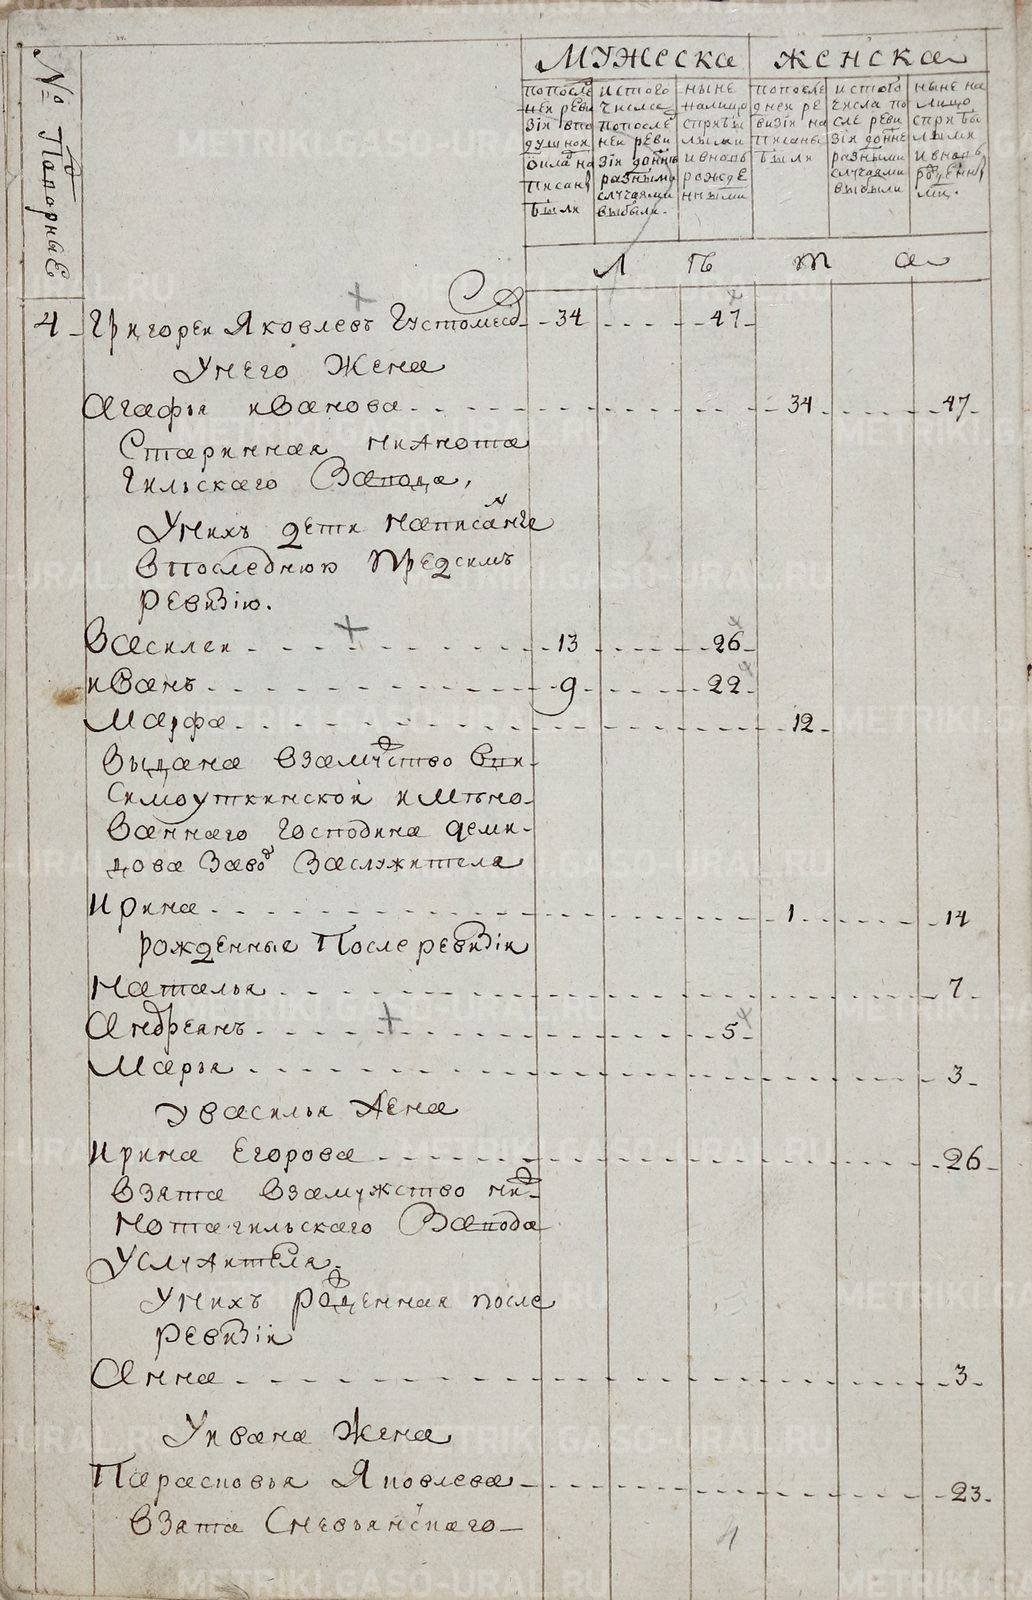 № Папорные
МУЖЕСКА
ЖЕНСКА
попосле
дней реви
зiи впо
душной
окладъ на
писаны
были
истого
числа
попосле
дней реви
зiи донне
разными
случаями
выбыли.
ныне
налицо
сприбы
лыми
ивновь
рожде
нными
попосле
дней ре
визiи на
писаны
были
истого
числа по
сле реви
зiи донне
разными
случаями
выбыли
ныне на
лицо
сприбы
лыми
ивновь
рожденны
ми.
Лѣта
4 Григореи Яковлевъ Густомесовъ 34 47
Унего Жена
Агафья иванова 34 47
Старинная нижнота
гильскаго Завода,
Унихъ дети написанне
впоследнюю предсимъ
ревизiю.
Василеи 13 26
иванъ 9 22
Марфа 12
выдана взамужство вви
симоуткинскои имѣно
ваннаго Господина деми
дова Завод Заслужителя
Ирина 1 14
рожденные После ревизiи
Наталья 7
Андреянъ 5
Марья 3
увасилья Жена
Ирина Егорова 26
взята взамужство ниж
нотагильскаго Завода
Услужителя.
Унихъ рожденная после
ревизiи
Анна 3
Уивана Жена
Парасковья Яковлева 23
взята Сневьянскаго
4
METRIKI.GASO-URAL.RU